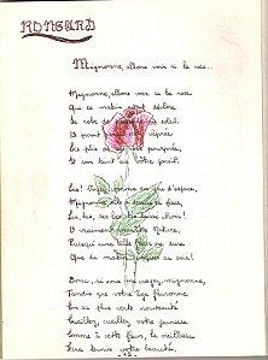 RONSARD
Mignonne, allons voir si la rose..
Mignonne, allons voir si la rose
Qui ce matin avait déclose
Sa robe de pourpre au soleil,
A point perdu cette vêprée
Les plis de sa robe pourprée,
Et son teint au vôtre pareil.
Las! Voyez comme en peu d'espace,
Mignonne, elle a dessus la place,
Las, las, ses beautés laissé choir!
O vraiment marâtre Nature,
Puisqu'une telle fleur ne dure
Que du matin jusques au soir!
Donc, si vous me croyez, mignonne,
Tandis que votre âge fleuronne
En sa plus verte nouveauté
Cueillez, cueillez votre jeunesse
Comme à cette fleur, la vieillesse
Fera ternir votre beauté.